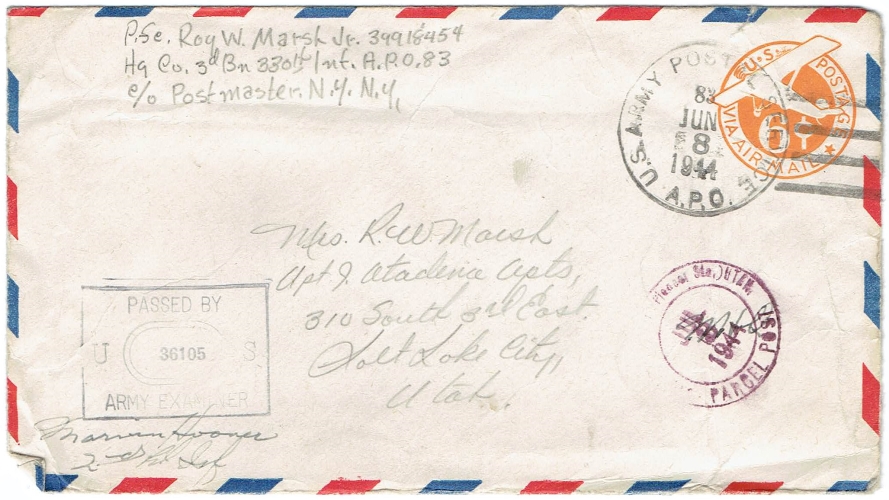 Pfc. Roy W. Marsh Jr. 39918454
Hq Co. 3d Bn 330th Inf. A.P.O. 83
c/o Postmaster. N.Y. N.Y.
U.S. POSTAGE
6¢
VIA AIR MAIL
U.S. ARMY POSTAL SERVICE
83
JUN
8
1944
A.P.O.
Mrs. R.W. Marsh
Apt 9. Atadenia Apts,
310 South 3rd East.
Salt Lake City,
Utah.
PASSED BY
U 36105 S
ARMY EXAMINER
Marvin Hooner
2nd Inf
UTAH
1944
PARCEL POST